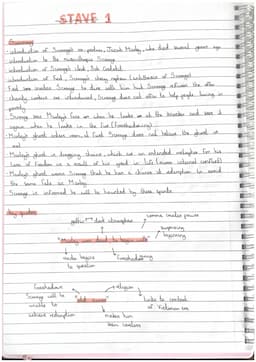 STAVE 1
Summary
- introduction of Scrooge's ex-partner, Jacob Marley, who died several years ago
- introduction to the misanthropic Scrooge
- introduction of Scrooge's clerk, Bob Cratchit
- introduction of Fred, Scrooge's cheery nephew (antithesis of Scrooge)
- Fred invites Scrooge to dine with him but Scrooge refuses the offer
- charity workers are introduced, Scrooge does not offer to help people living in
poverty
- Scrooge sees Marley's face on when he looks at the knocker and sees it
again when he looks in the fire (foreshadowing)
- Marley's ghost enters room, at first Scrooge does not believe the ghost is
real
- Marley's ghost is dragging chains, which is an extended metaphor for his
loss of freedom as a result of his greed in life
- Marley's ghost warns Scrooge that he has a chance of redemption to avoid
the same fate as Marley
- Marley's ghost warns Scrooge he will be haunted by three spirits
Key quotes
gothic
dark atmosphere
"Marley was dead to begin with"
surprising
beginning
makes
to question
foreshadowing
foreshadows
Scrooge will be
unable to
achieve redemption
religion
"old sinner"
links to context
of Victorian era
makes him
seem